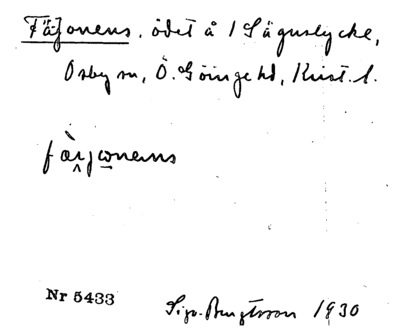 Färjonens, ödet å 1 Sägnslycke,
Osby sn, Ö. Göinge hd, Krist. l.
færjωnens
Nr 5433 Sigv. Bengtsson 1930